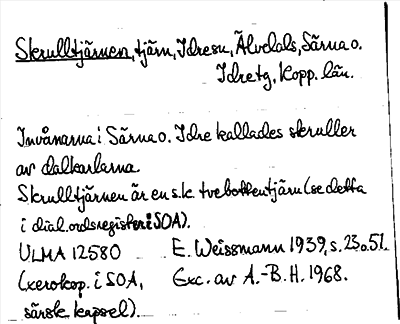 Skrulltjärnen, tjärn, Idresn, Älvdals, Särna o.
Idretg, Kopp. län.
Invånarna i Särna o. Idre kallades skruller
av dalkarlarna.
Skrulltjärnen är en s.k. tvebottentjärn (se detta
i dial.ordsregister i SOA).
ULMA 12580 E. Weissmann 1939, s. 23 o. 51.
(xerokop. i SOA, Exc. av A.-B. H. 1968.
särsk. kapsel).